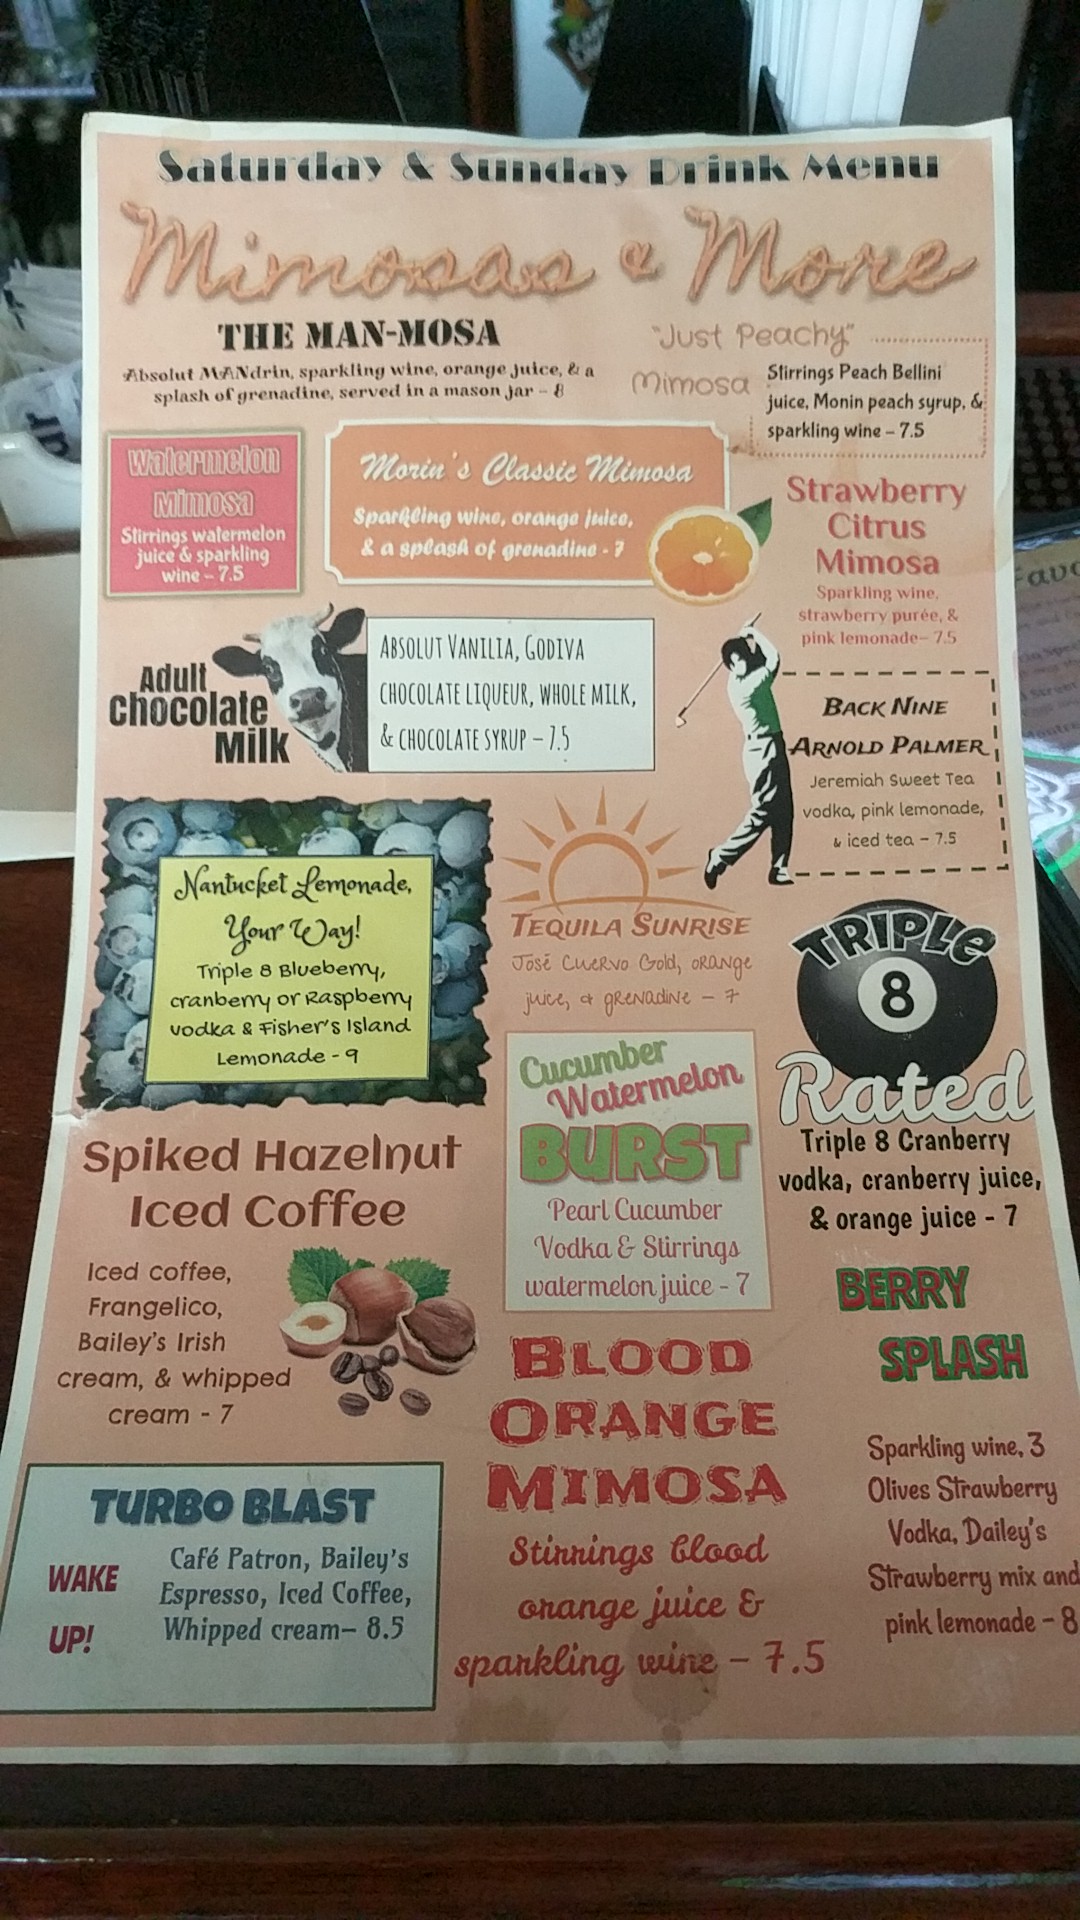 Saturday & Sunday Drink Menu
Mimosas & More
THE MAN-MOSA
Absolut MANdrin, sparkling wine, orange juice, & a
splash of grenadine, served in a mason jar – 8
"Just Peachy"
Mimosa
Stirrings Peach Bellini
juice, Monin peach syrup, &
sparkling wine – 7.5
Watermelon
Mimosa
Stirrings watermelon
juice & sparkling
wine – 7.5
Morin's Classic Mimosa
Sparkling wine, orange juice,
& a splash of grenadine - 7
Strawberry
Citrus
Mimosa
Sparkling wine,
strawberry purée, &
pink lemonade– 7.5
Adult
chocolate
Milk
ABSOLUT VANILIA, GODIVA
CHOCOLATE LIQUEUR, WHOLE MILK,
& CHOCOLATE SYRUP – 7.5
BACK NINE
ARNOLD PALMER
Jeremiah Sweet Tea
vodka, pink lemonade,
& iced tea – 7.5
Nantucket Lemonade,
Your Way!
Triple 8 Blueberry,
cranberry or Raspberry
vodka & Fisher's Island
Lemonade - 9
TEQUILA SUNRISE
José Cuervo Gold, orange
juice, & grenadine – 7
TRIPLE
8
Rated
Triple 8 Cranberry
vodka, cranberry juice,
& orange juice - 7
Cucumber
Watermelon
BURST
Pearl Cucumber
Vodka & Stirrings
watermelon juice - 7
Spiked Hazelnut
Iced Coffee
Iced coffee,
Frangelico,
Bailey's Irish
cream, & whipped
cream - 7
BERRY
SPLASH
Sparkling wine, 3
Olives Strawberry
Vodka, Dailey's
Strawberry mix and
pink lemonade – 8
BLOOD
ORANGE
MIMOSA
Stirrings blood
orange juice &
sparkling wine – 7.5
TURBO BLAST
WAKE
UP!
Café Patron, Bailey's
Espresso, Iced Coffee,
Whipped cream– 8.5